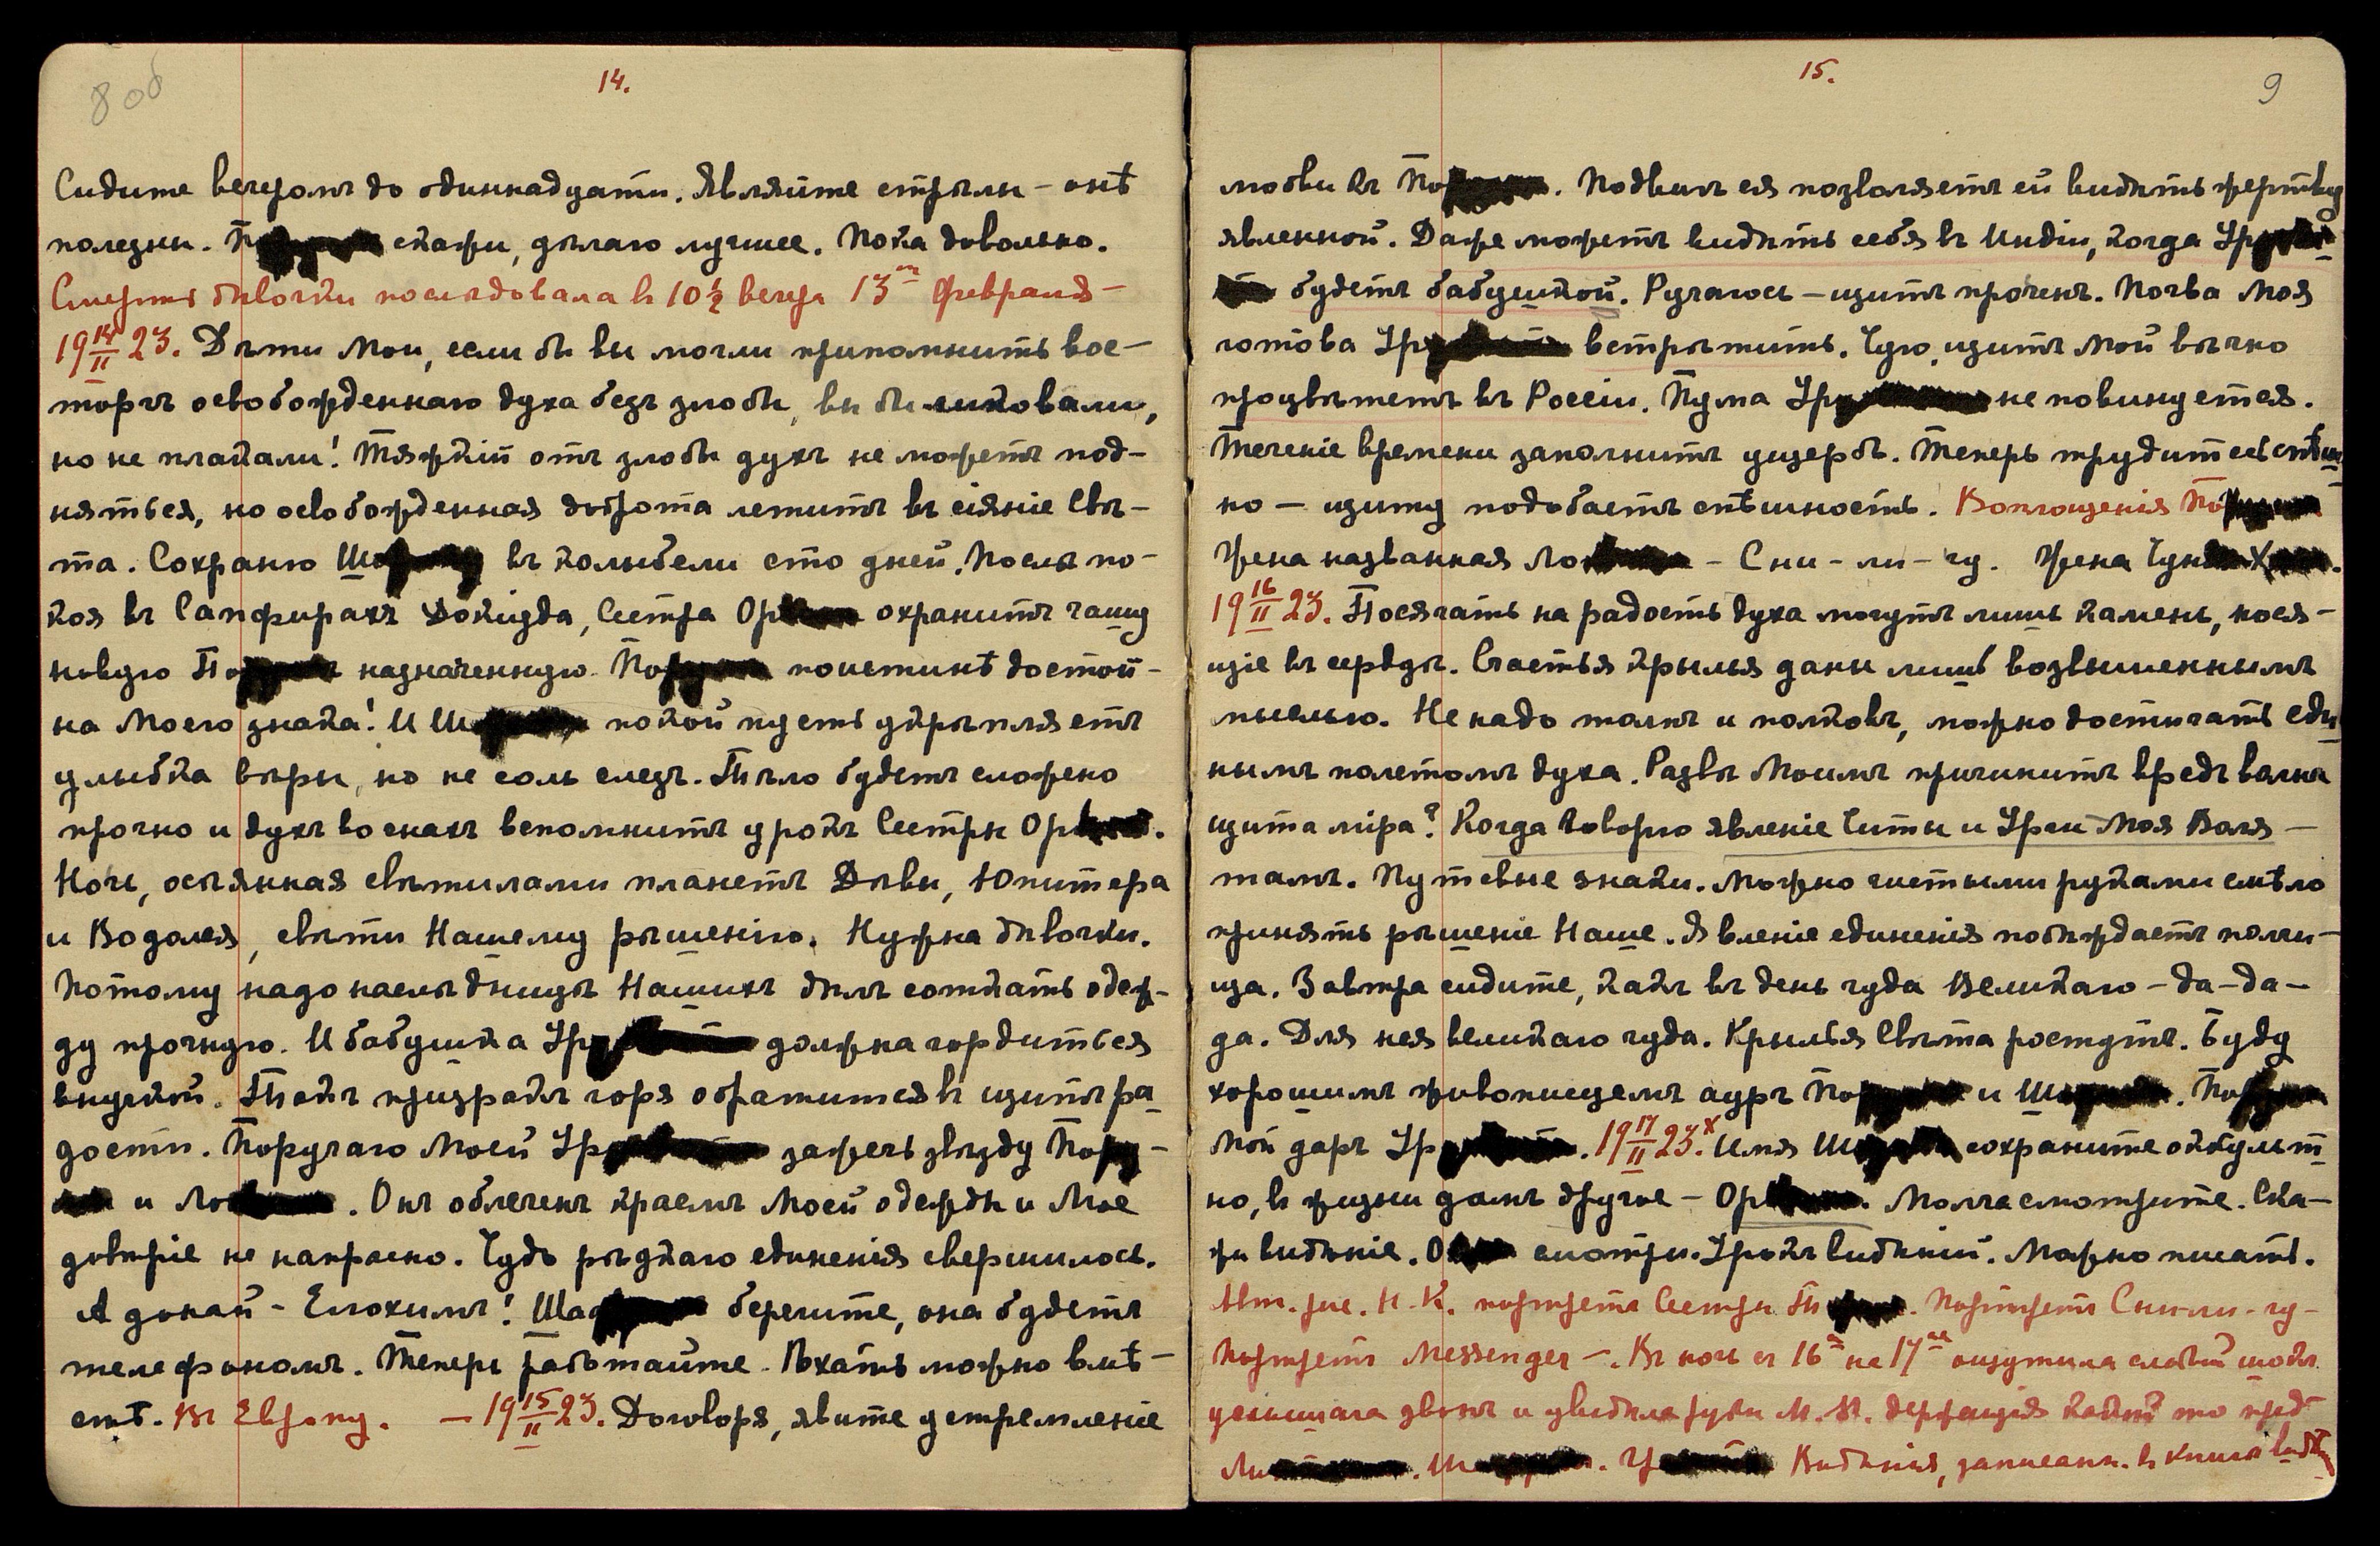 8 об
14.
Сидите вечеромъ до одиннадцати. Являйте стрѣлы – онѣ
полезны. скажи, дѣлаю лучшее. Пока довольно.
Смерть дѣвочки послѣдовала въ 10 ½ вечера 13го февраля –
19 14/II 23. Дѣти Мои, если бы вы могли припомнить вос–
торгъ освобожденнаго духа безъ злобы, вы бы ликовали,
но не плакали! Тяжкій отъ злобы духъ не можетъ под–
няться, но освобожденная доброта летитъ въ сіяніе Свѣ–
та. Сохраню въ колыбели сто дней. Послѣ по–
коя въ Сапфирахъ Докіуда, Сестра Ор охранитъ чашу
новую По назначенную. Пор поистинѣ достой–
на Моего знака! И Ш покой пусть укрѣпляетъ
улыбка вѣры, но не соль слезъ. Тѣло будетъ сложено
прочно и духъ во снахъ вспомнитъ урокъ Сестры Ор.
Ночь, осѣянная свѣтилами планетъ Дѣвы, Юпитера
и Водолея, свѣти Нашему рѣшенію. Нужна дѣвочки.
Потому надо наслѣдницѣ Нашихъ дѣлъ соткать одеж–
ду прочную. И бабушка Ур должна гордиться
внучкой. Такъ призракъ горя обратится въ щитъ ра–
дости. Поручаю Моей Ур зажечь звѣзду Пору–
и Ло. Онъ облеченъ краемъ Моей одежды и Мое
довѣріе не напрасно. Чудо рѣдкаго единенія свершилось.
Адонай – Елохимъ! Ша берегите, она будетъ
телефономъ. Теперь работайте. Ѣхать можно вмѣ–
стѣ. Въ Европу. – 19 15/II 23. Договоря, явите устремленіе
15.
9
любви къ По. Подвигъ ея позволяетъ ей видѣть жертву
явленной. Даже можетъ видѣть себя въ Индіи, когда Ур
будетъ бабушкой. Ручаюсь – щитъ проченъ. Почва Моя
готова Ур встрѣтить. Чую, щитъ Мой вѣчно
процвѣтетъ въ Россіи. Пума Ур не повинуется.
Теченіе времени заполнитъ ущербъ. Теперь трудитесь спѣш–
но – щиту подобаетъ спѣшность. Воплощенія По
Жена названная Ло – Сни – ли – чу. Жена Чун.
19 16/II 23. Посягать на радость духа могутъ лишь камень, нося–
щіе въ сердцѣ. Счастья крылья даны лишь возвышеннымъ
мыслью. Не надо толпъ и полковъ, можно достигать еди–
нымъ полетомъ духа. Развѣ Моимъ причинитъ вредъ волна
щита міра? Когда говорю явленіе Читы и Урги Моя Воля –
тамъ. Путевые знаки. Можно чистыми руками смѣло
принять рѣшеніе Наше. Явленіе единенія побѣждаетъ полчи–
ща. Завтра сидите, какъ въ день чуда Великаго – да – да –
да. Для нея великаго чуда. Крылья Свѣта ростутъ. Буду
хорошимъ живописцемъ ауръ По и Ш. По
Мой даръ Ур. 19 17/II 23.х Имя Ш сохраните оккульт–
но, въ жизни дамъ другое – Ор. Молча смотрите. Ска–
жи видѣніе. О смотри. Урокъ видѣній. Можно писать.
Авт. рис. Н. К. портретъ Сестры. Портретъ Сни-ли-чу –
Портретъ Messenger –. Въ ночь съ 16го на 17ое ощутила слабый шокъ
услышала звонъ и увидѣла руки М. М. держащія какой то пред–
Ли. Ш. Видѣнія, записанн. въ книгѣ видѣн.